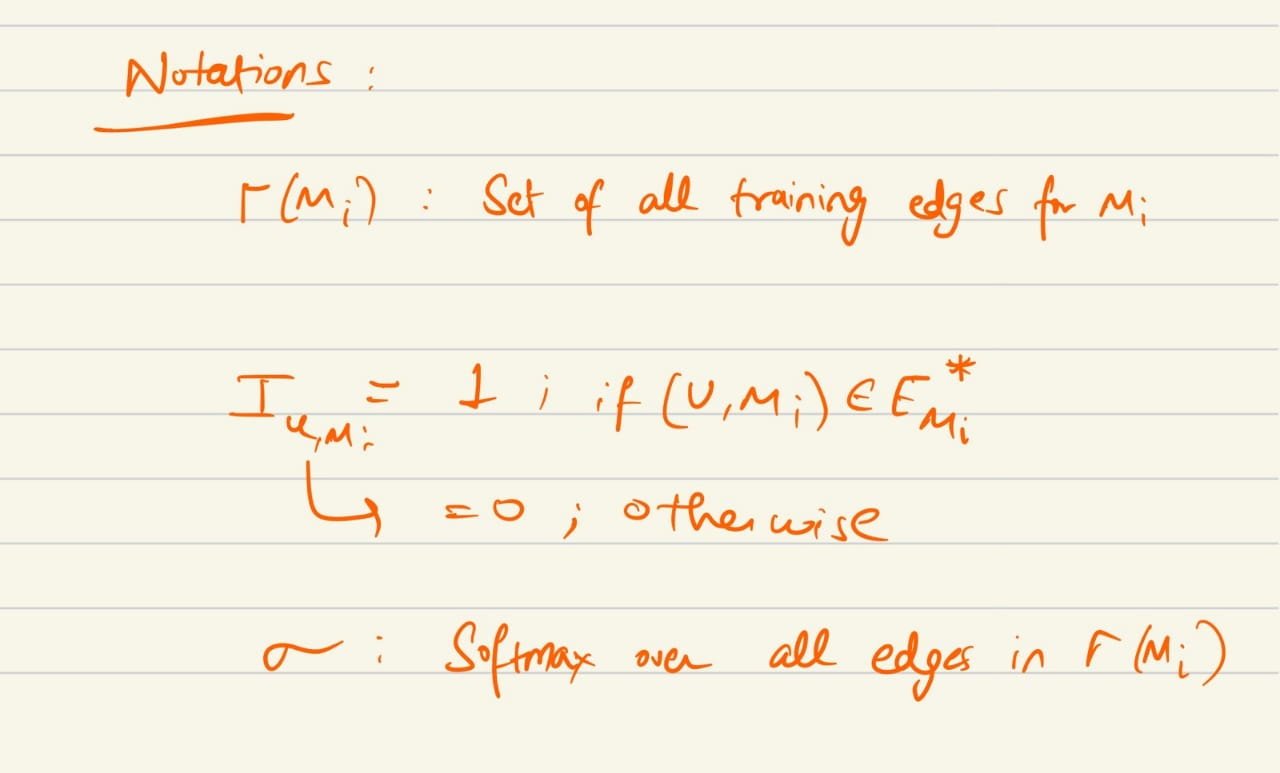 Notations :
Γ(Mi) : Set of all training edges for Mi
I u,Mi = 1 ; if (U,Mi) ∈ E*Mi
↳ =0 ; otherwise
σ : Softmax over all edges in Γ(Mi)